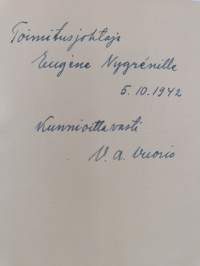 Toimitusjohtaja
Eugène Nygrénille
5.10.1942
Kunnioittavasti
V. A. Vuorio